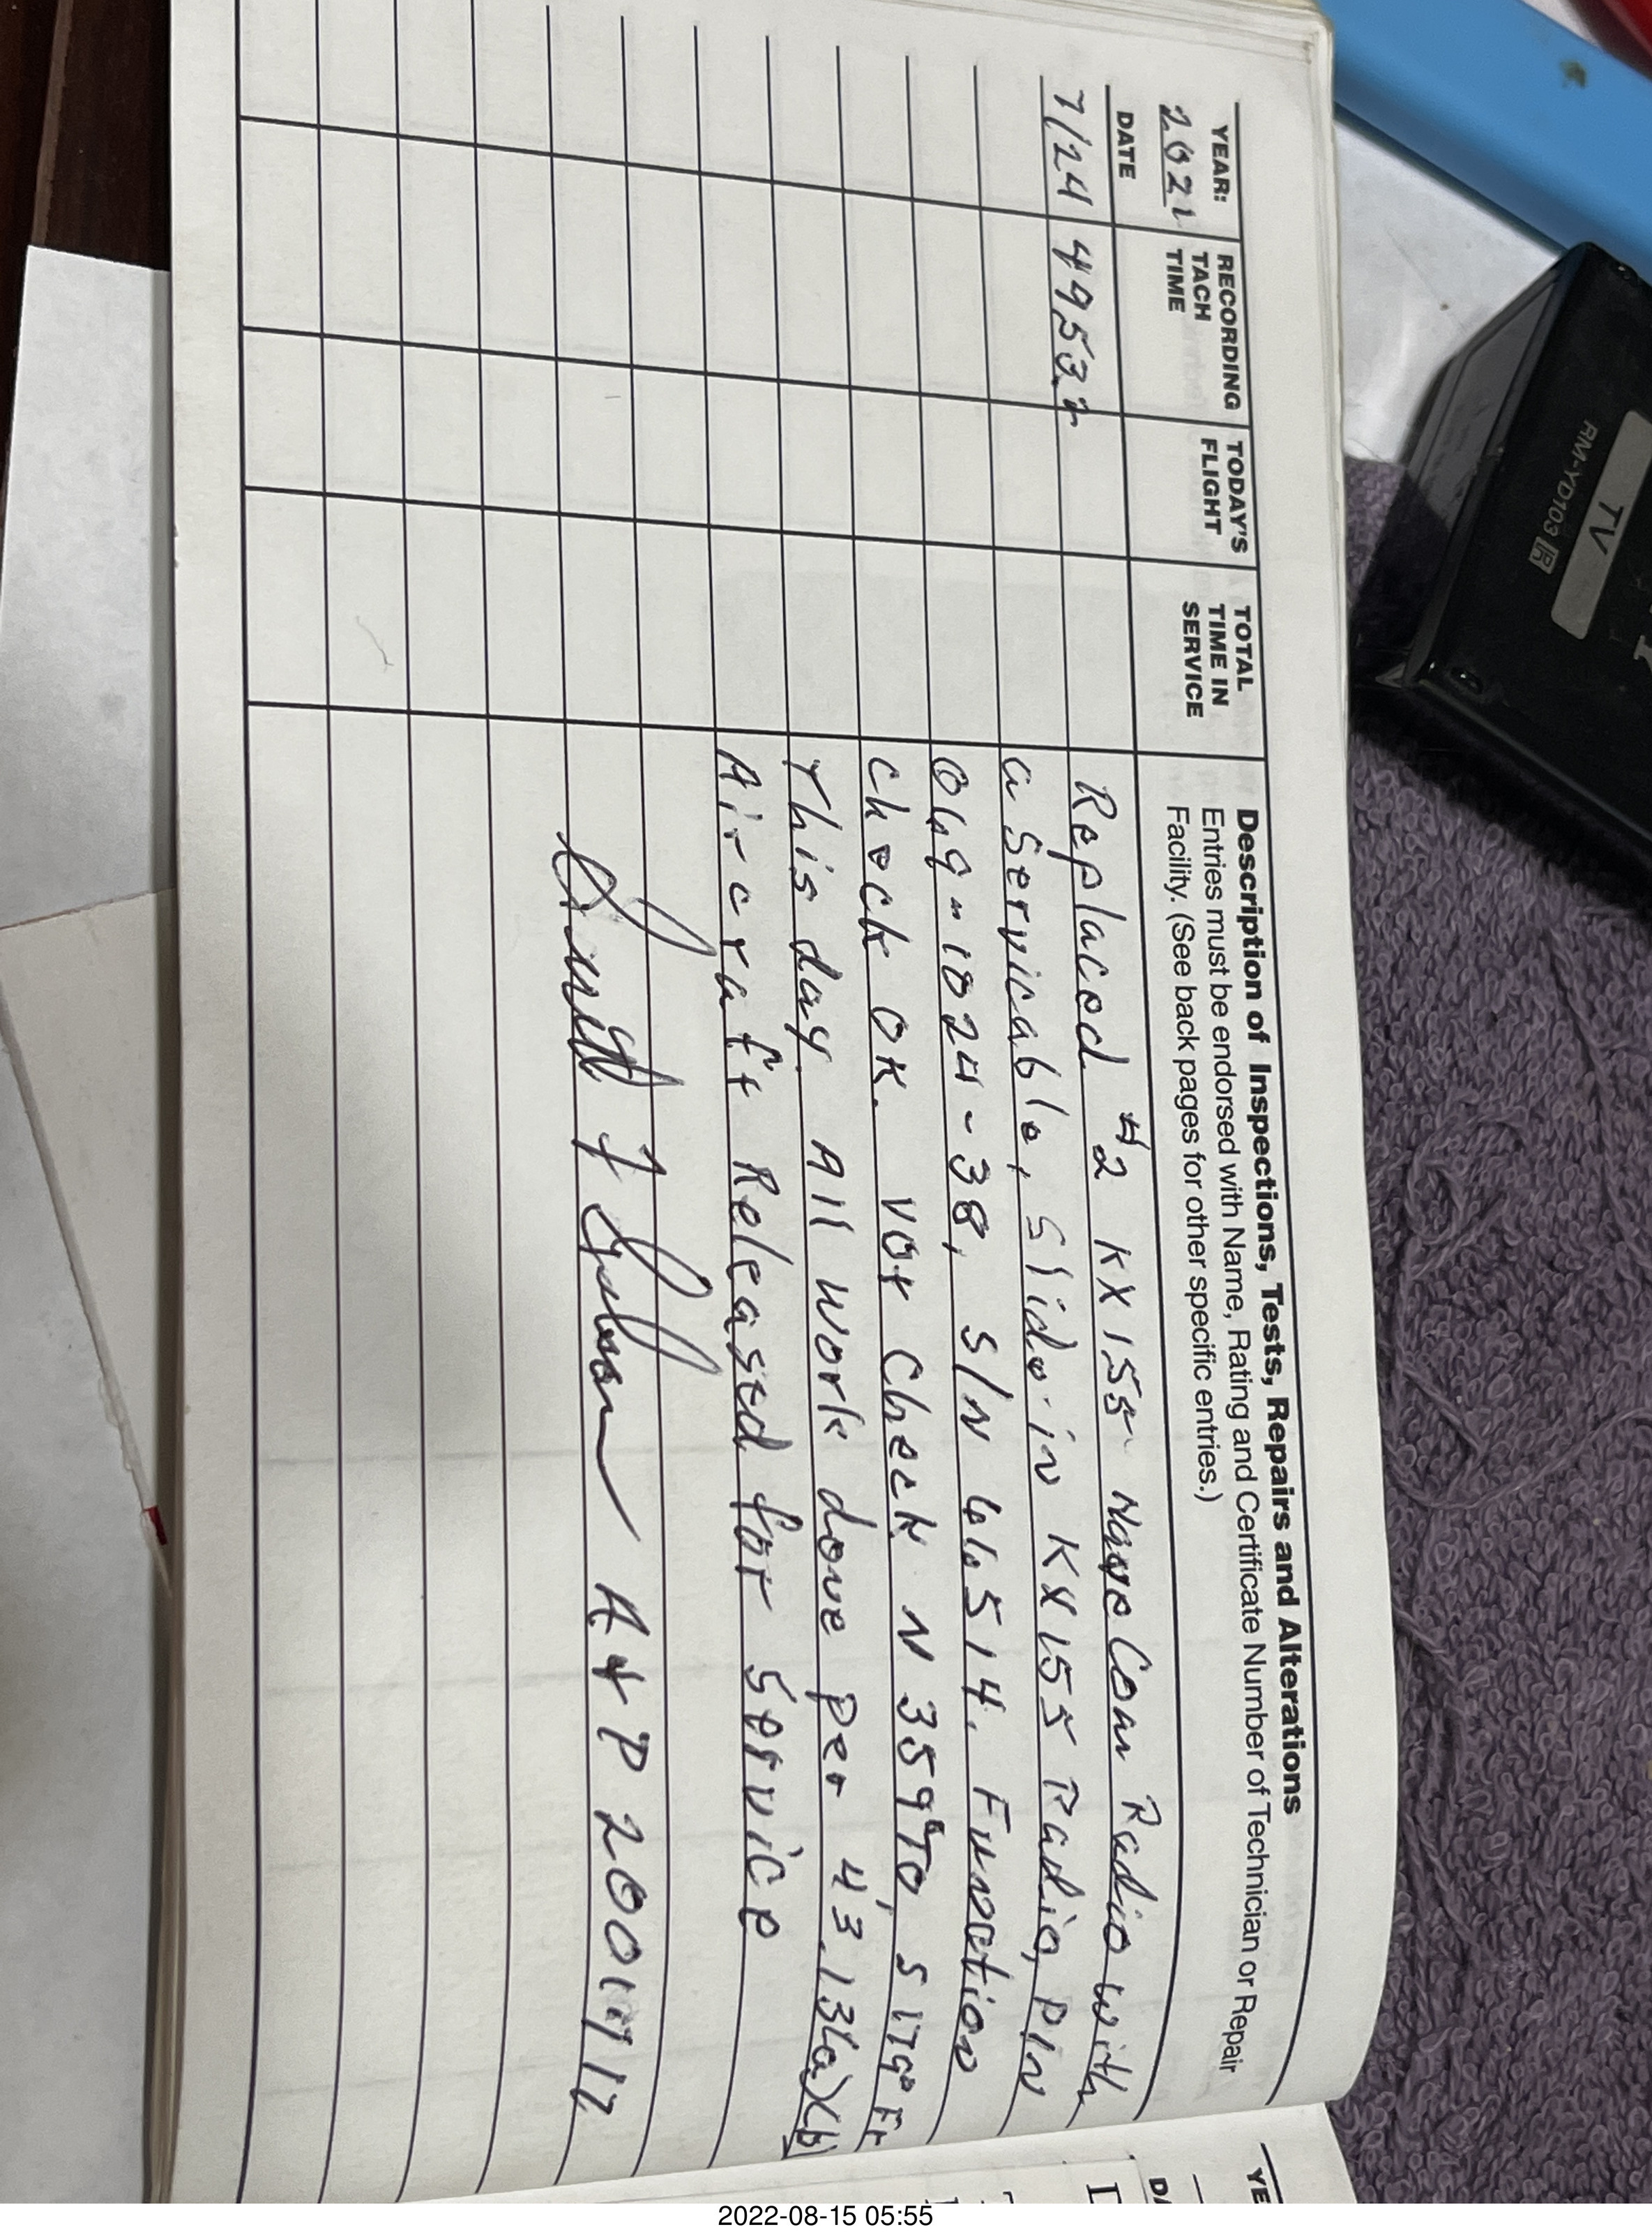 YEAR:
2021
DATE
RECORDING
TACH
TIME
TODAY'S
FLIGHT
TOTAL
TIME IN
SERVICE
Description of Inspections, Tests, Repairs and Alterations
Entries must be endorsed with Name, Rating and Certificate Number of Technician or Repair
Facility. (See back pages for other specific entries.)
7/24 4953.2 Replaced #2 KX155 Radio with
a Servicable, Slide-in KX155 Radio, P/N
069-1024-38, S/N 46514. Function
Check OK. VOR Check N 359° TO, S 179° Fr
This day. All work done per 43.13(a)(b)
Aircraft Released for Service
A&P
TV
RM-YD103
YE
DA
2022-08-15 05:55